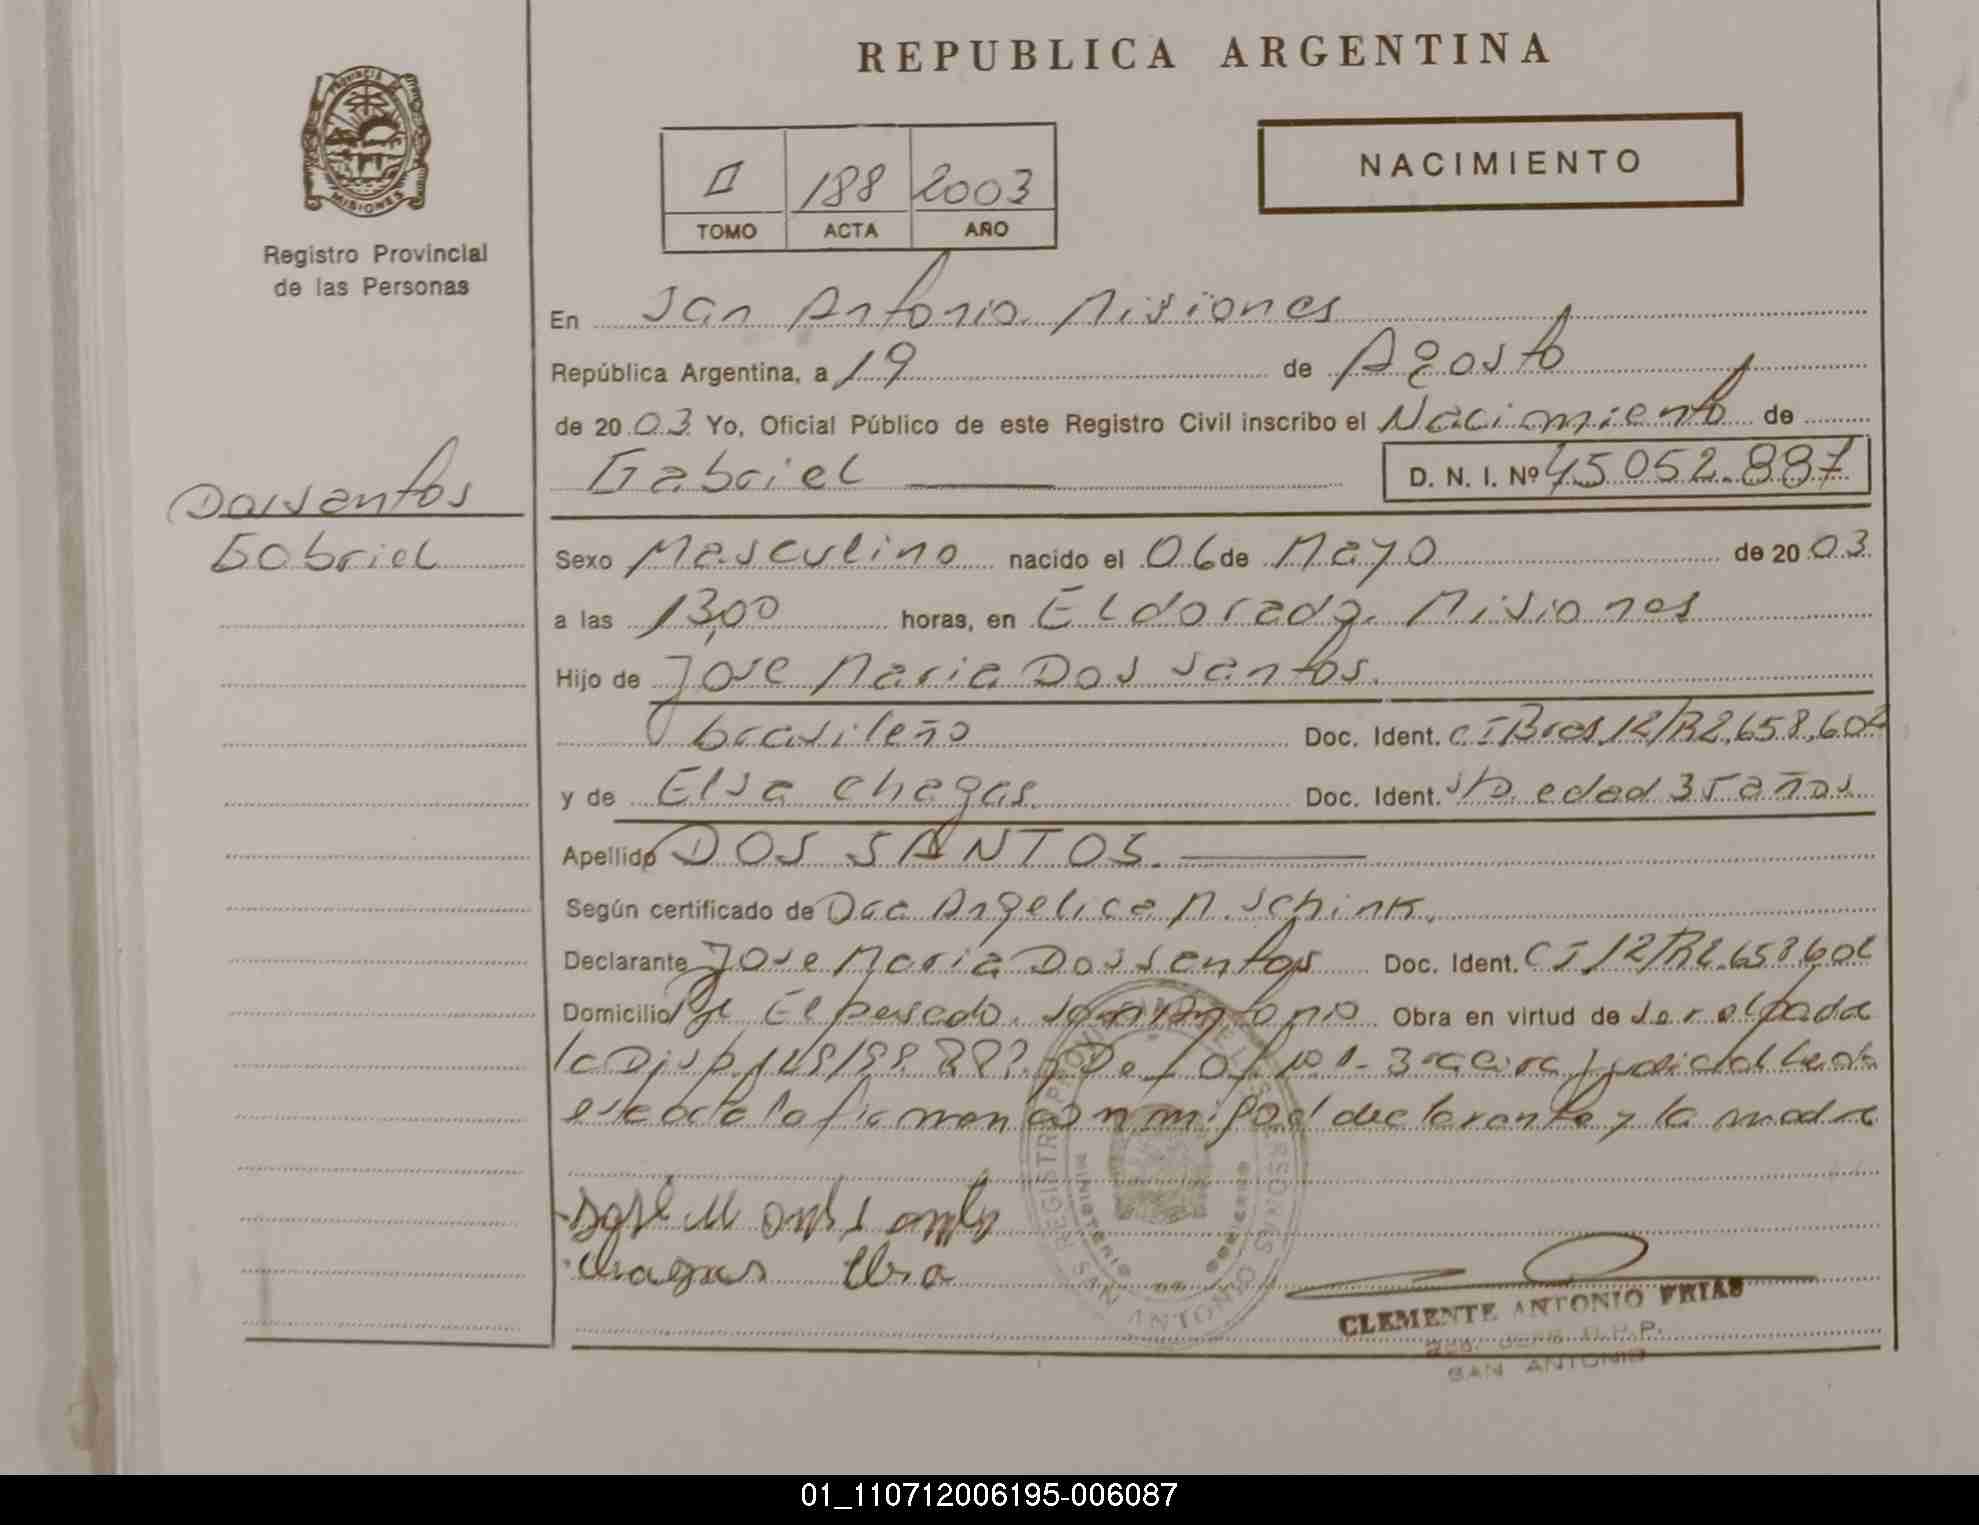 PROVINCIA DE
MISIONES
Registro Provincial
de las Personas
Dos santos
Gabriel
REPUBLICA ARGENTINA
II 188 2003
TOMO ACTA AÑO
NACIMIENTO
En San Antonio Misiones
República Argentina, a 19 de Agosto
de 2003 Yo, Oficial Público de este Registro Civil inscribo el Nacimiento de
Gabriel D. N. I. Nº 45.052.887
Sexo Masculino nacido el 06 de Mayo de 2003
a las 13,00 horas, en Eldorado, Misiones
Hijo de Jose Maria Dos Santos.
brasileño Doc. Ident. CI Bras 12/R2,658,602
y de Elsa Chagas. Doc. Ident. S/D. edad 35 años
Apellido DOS SANTOS.
Según certificado de Dra Angelica M. Schink.
Declarante Jose Maria Dos santos Doc. Ident. CI 12/R2.658602
Domicilio El pesado. San Antonio Obra en virtud de
la judicial
esta acta la firman con migo el declarante y la madre
José M
Chagas Elsa
REGISTRO PROVINCIAL DE LAS PERSONAS
MINISTERIO DE GOBIERNO
SAN ANTONIO
CLEMENTE ANTONIO FRIAS
SAN ANTONIO
01_110712006195-006087